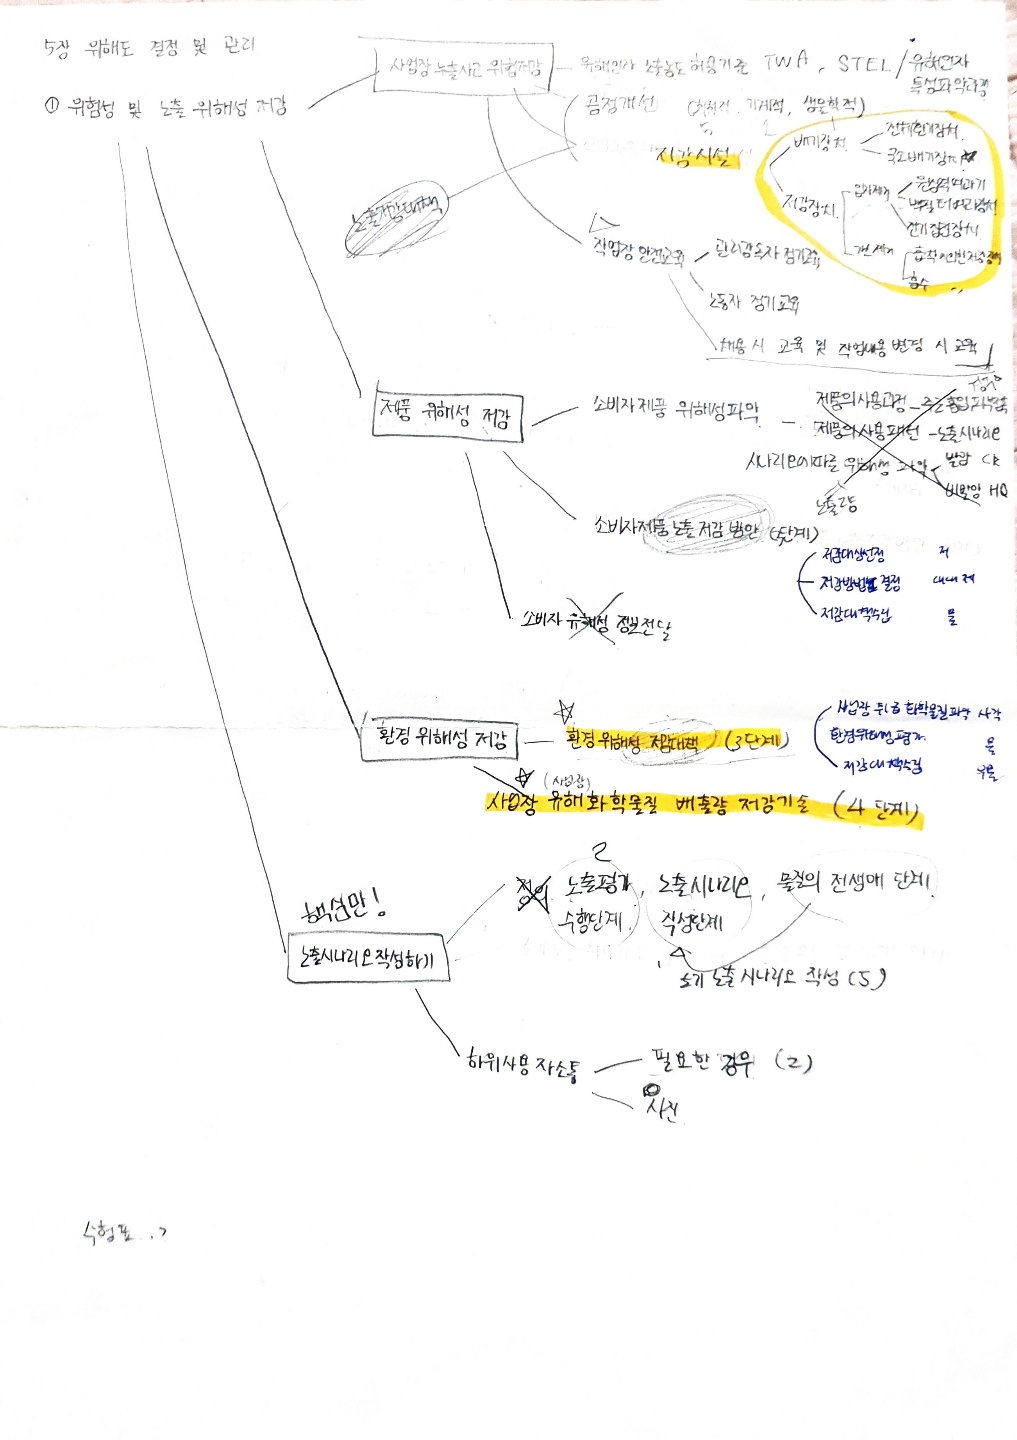 5장 위해도 결정 및 관리
① 위험성 및 노출 위해성 저감
사업장 노출사고 위험저감
유해인자 노출농도 허용기준 TWA, STEL / 유해인자
특성파악과정
공정개선 (화학적, 기계적, 생물학적)
저감시설
배기장치
전체환기장치
국소배기장치
저감장치
입자제거
원심력여과기
전기집진장치
흡수
노출저감대책
작업장 안전교육
관리감독자 정기교육
노동자 정기교육
채용 시 교육 및 작업내용 변경 시 교육
제품 위해성 저감
소비자제품 위해성파악
제품의 사용과정
제품의 사용패턴 - 노출시나리오
시나리오에 따른 위해성 파악
발암 CR
비발암 HQ
노출고통
소비자제품 노출 저감 방안 (단계)
저감대상선정 저
저감방법 결정
저감대책수립 물
소비자 유해성 정보전달
환경 위해성 저감
환경 위해성 저감대책 (3단계)
사업장 화학물질파악 사각
환경위해성 평가 물
저감대책수립
(사업장)
사업장 유해화학물질 배출량 저감기술 (4단계)
핵심만!
노출시나리오 작성하기
2
정의 노출평가, 노출시나리오, 물질의 전생애 단계
수행단계. 작성단계
초기 노출시나리오 작성 (5)
하위사용자소통
필요한 경우 (2)
사진
수험표..?